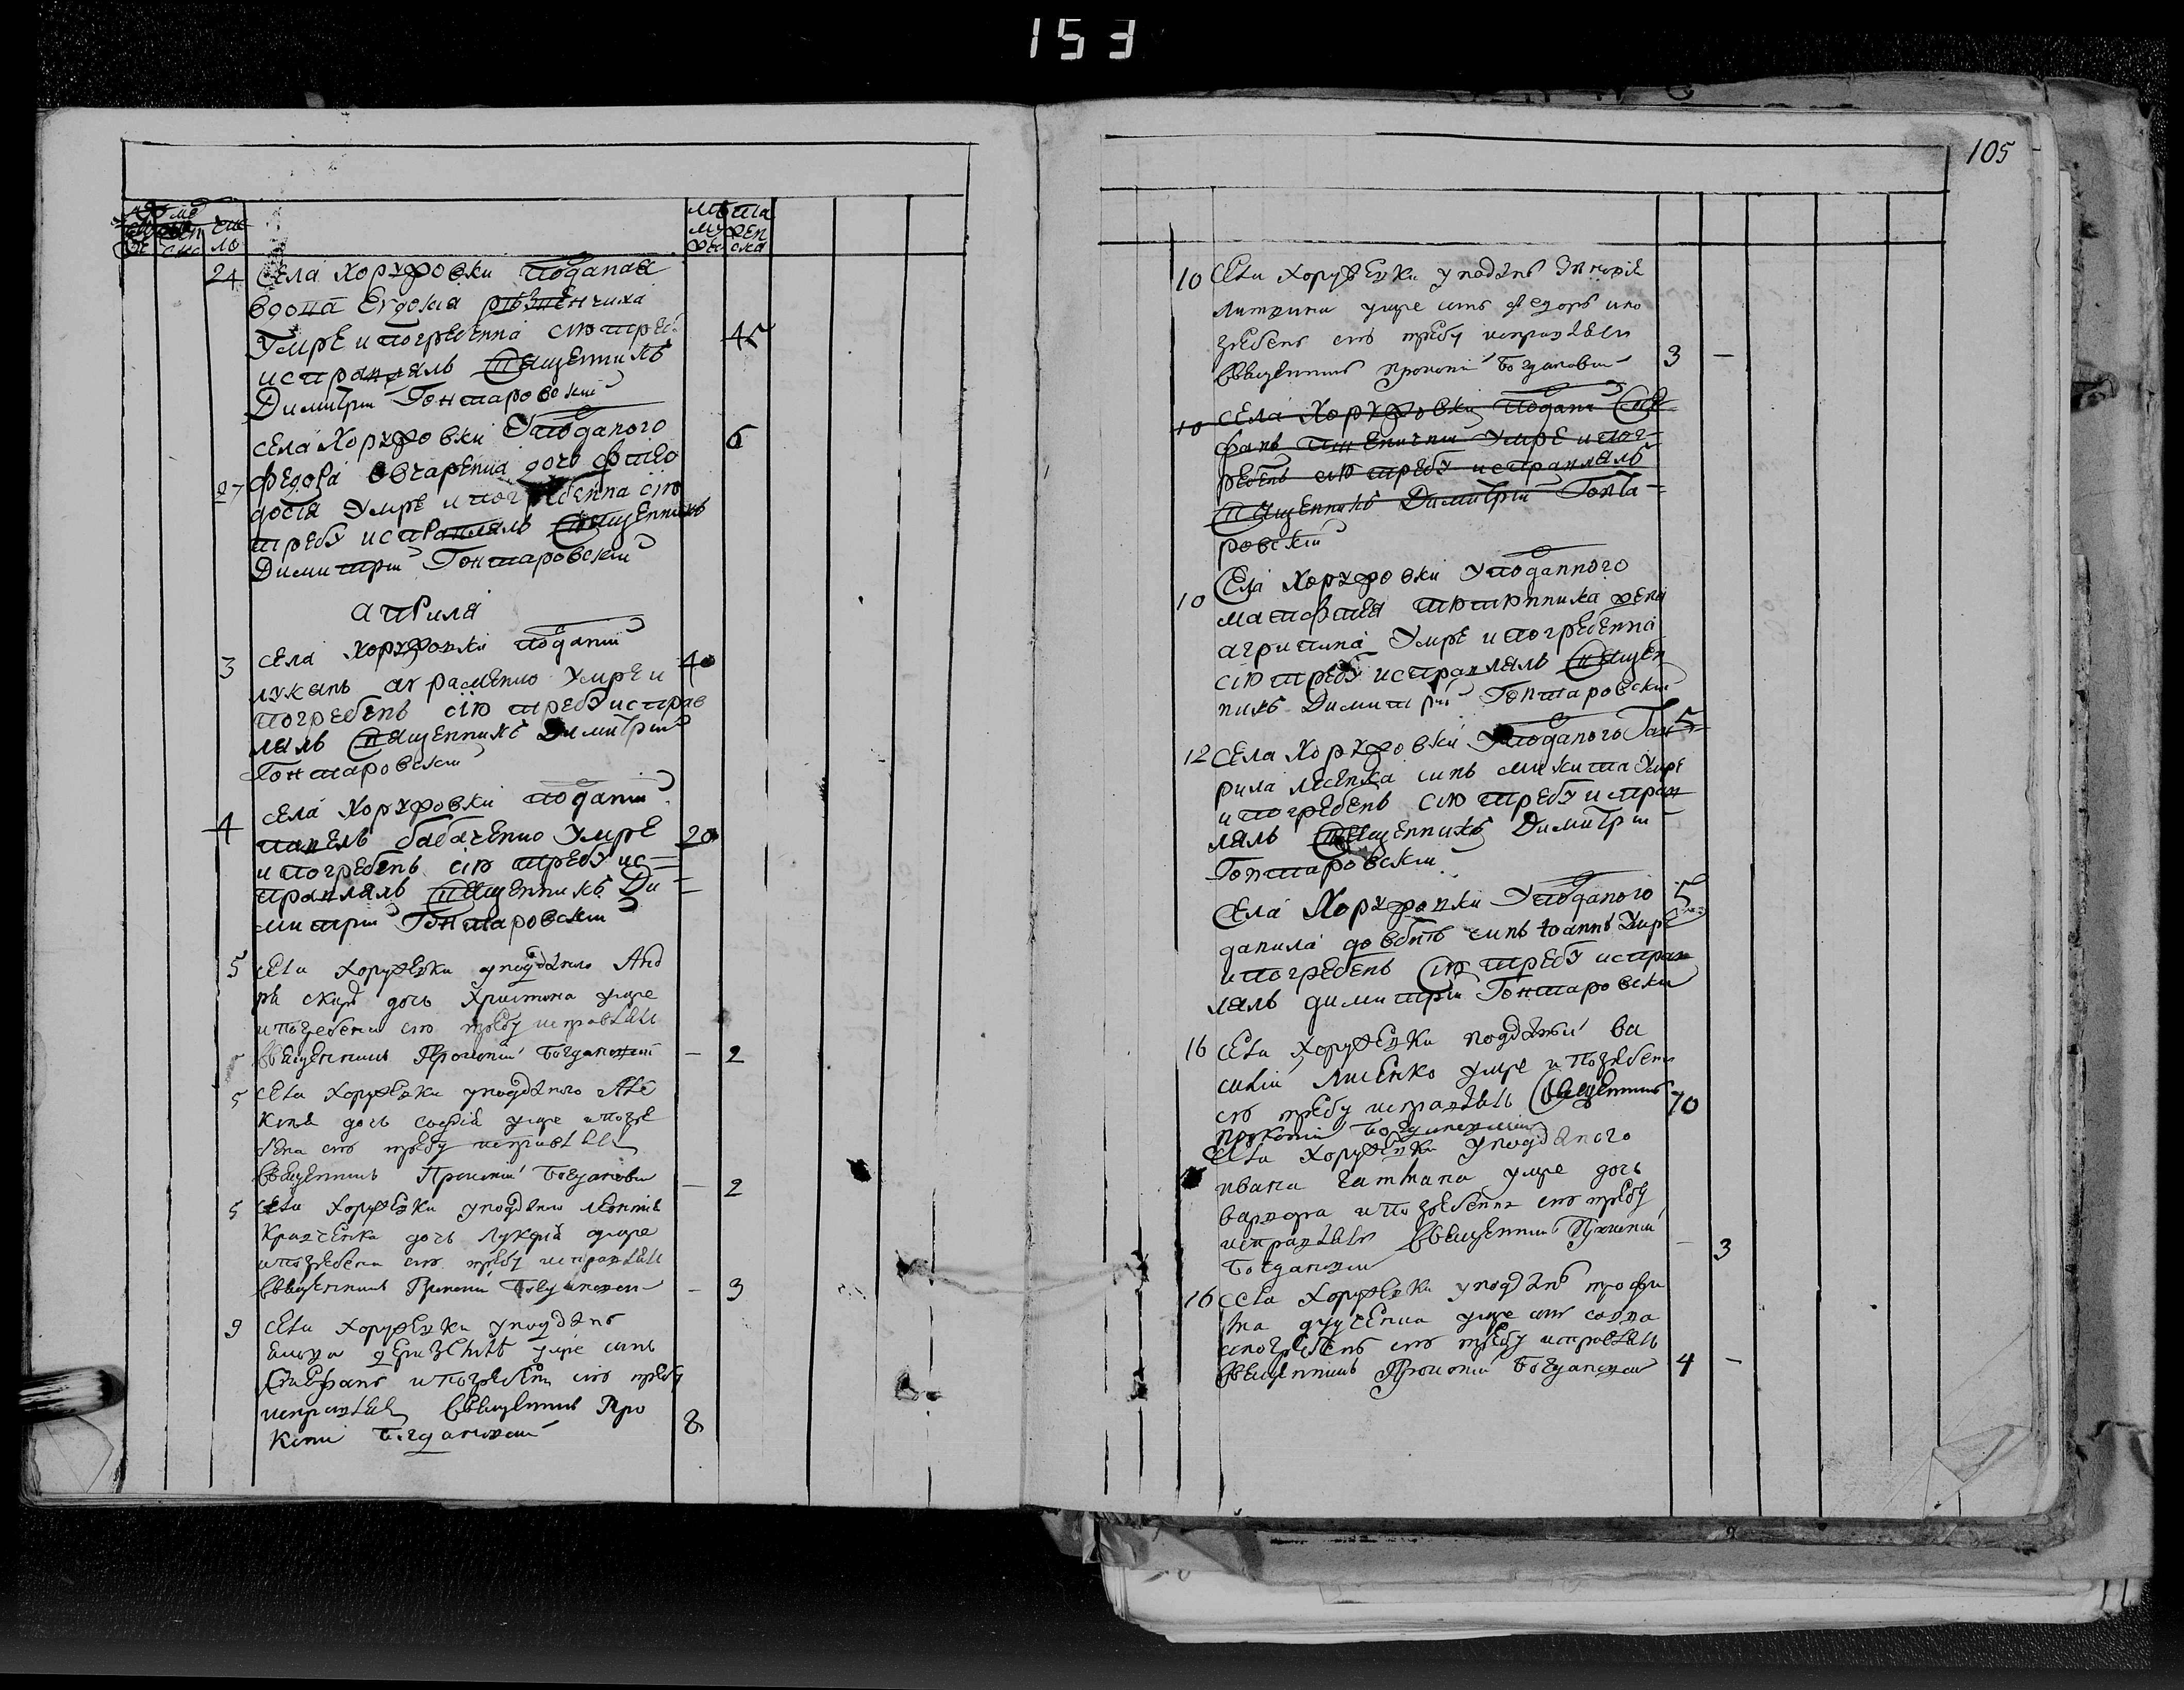 153
105
число
лѣта
муже
ска
женска
24 села Хоружовки поданая
вдова Евдокия
Умре и погребенна сию треб
45
исправлялъ священникъ
Димитрий Гонтаровский
села Хоружовки Уподаного
6
27 федора Овчаренка дочь фтео
досия Умре и погребенна сию
требу исправлялъ священникъ
Димитрий Гонтаровский
априля
3 села Хоружовки поданий
40
лукянъ Авраменко Умре и
погребенъ сию требу исправ
лялъ священникъ Димитрий
Гонтаровский
села Хоружовки поданий
4 павелъ бабаченко Умре 20
и погребенъ сию требу ис
правлялъ священникъ Ди
митрий Гонтаровский
5 села Хоружевки уподданого Анд
рея дочь Христина умре
и погребена сию требу исправлялъ
священникъ Прокопий Богдановский 2
5 села Хоружевки уподданого Але
дочь софия умре и погре
бена сию требу исправлялъ
священникъ Прокопий Богдановски 2
5 села Хоружевки уподданого
Кравченка дочь умре
и погребена сию требу исправлялъ
священникъ Прокопий Богдановски 3
9 села Хоружевки уподданъ
умре синъ
Стефанъ и погребенъ сию требу
исправлялъ священникъ Про
копий Богдановский 8
10 села Хоружевки уподданъ
умре синъ федоръ и по
гребенъ сию требу исправлялъ
священникъ Прокопий Богдановский 3 —
10 села Хоружовки подани Сте
фанъ Умре и пог
ребенъ сию требу исправлялъ
священникъ Димитрий Гонта
ровский
10 Села Хоружовки Уподанного
матфтея жена
агрипина Умре и погребенна
сию требу исправлялъ священ
никъ Димитрий Гонтаровский
12 села Хоружовки Уподаного Гав 5
рила лисенка синъ микита Умре
и погребенъ сию требу исправ
лялъ священникъ Димитрий
Гонтаровский
Села Хоружовки Уподаного 5
данила синъ Іоаннъ Умре
и погребенъ сию требу исправ
лялъ димитрий Гонтаровски
16 села Хоружевки подданий Ва
силий Лисенко умре и погребенъ
сию требу исправлялъ священникъ 70
прокопий Богдановский
Села Хоружевки Уподданого
ивана умре дочь
варвара и погребенна сию требу
исправлялъ священникъ Прокопий
3
Богдановски
16 села Хоружевки уподданъ трофи
ма умре синъ савва
и погребенъ сию требу исправлялъ
священникъ Прокопий Богдановски 4 —